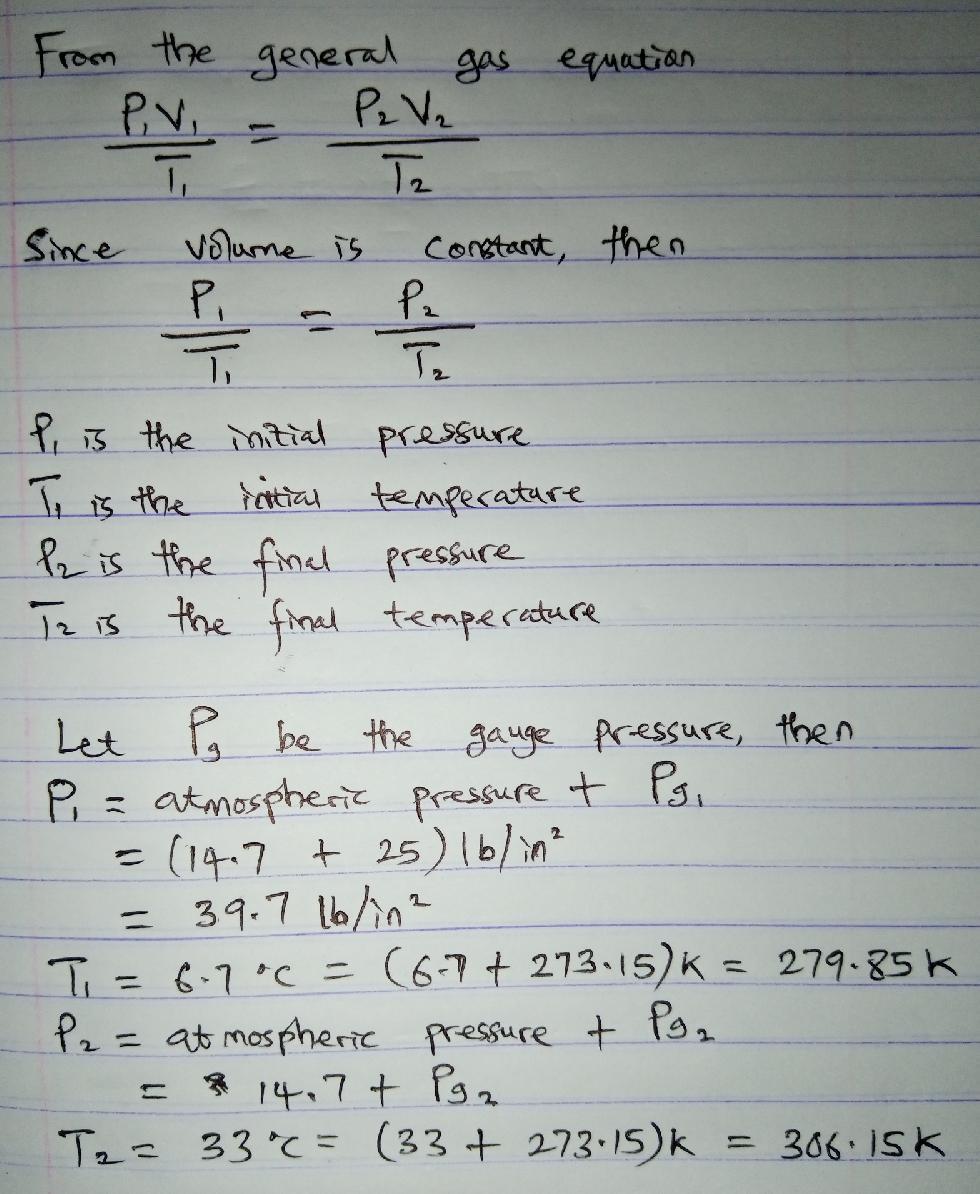 From the general gas equation
P₁V₁ / T₁ = P₂V₂ / T₂
Since volume is constant, then
P₁ / T₁ = P₂ / T₂
P₁ is the initial pressure
T₁ is the initial temperature
P₂ is the final pressure
T₂ is the final temperature
Let Pg be the gauge pressure, then
P₁ = atmospheric pressure + Pg₁
= (14.7 + 25) lb/in²
= 39.7 lb/in²
T₁ = 6.7 °C = (6.7 + 273.15)K = 279.85 K
P₂ = atmospheric pressure + Pg₂
= 14.7 + Pg₂
T₂ = 33 °C = (33 + 273.15)K = 306.15K